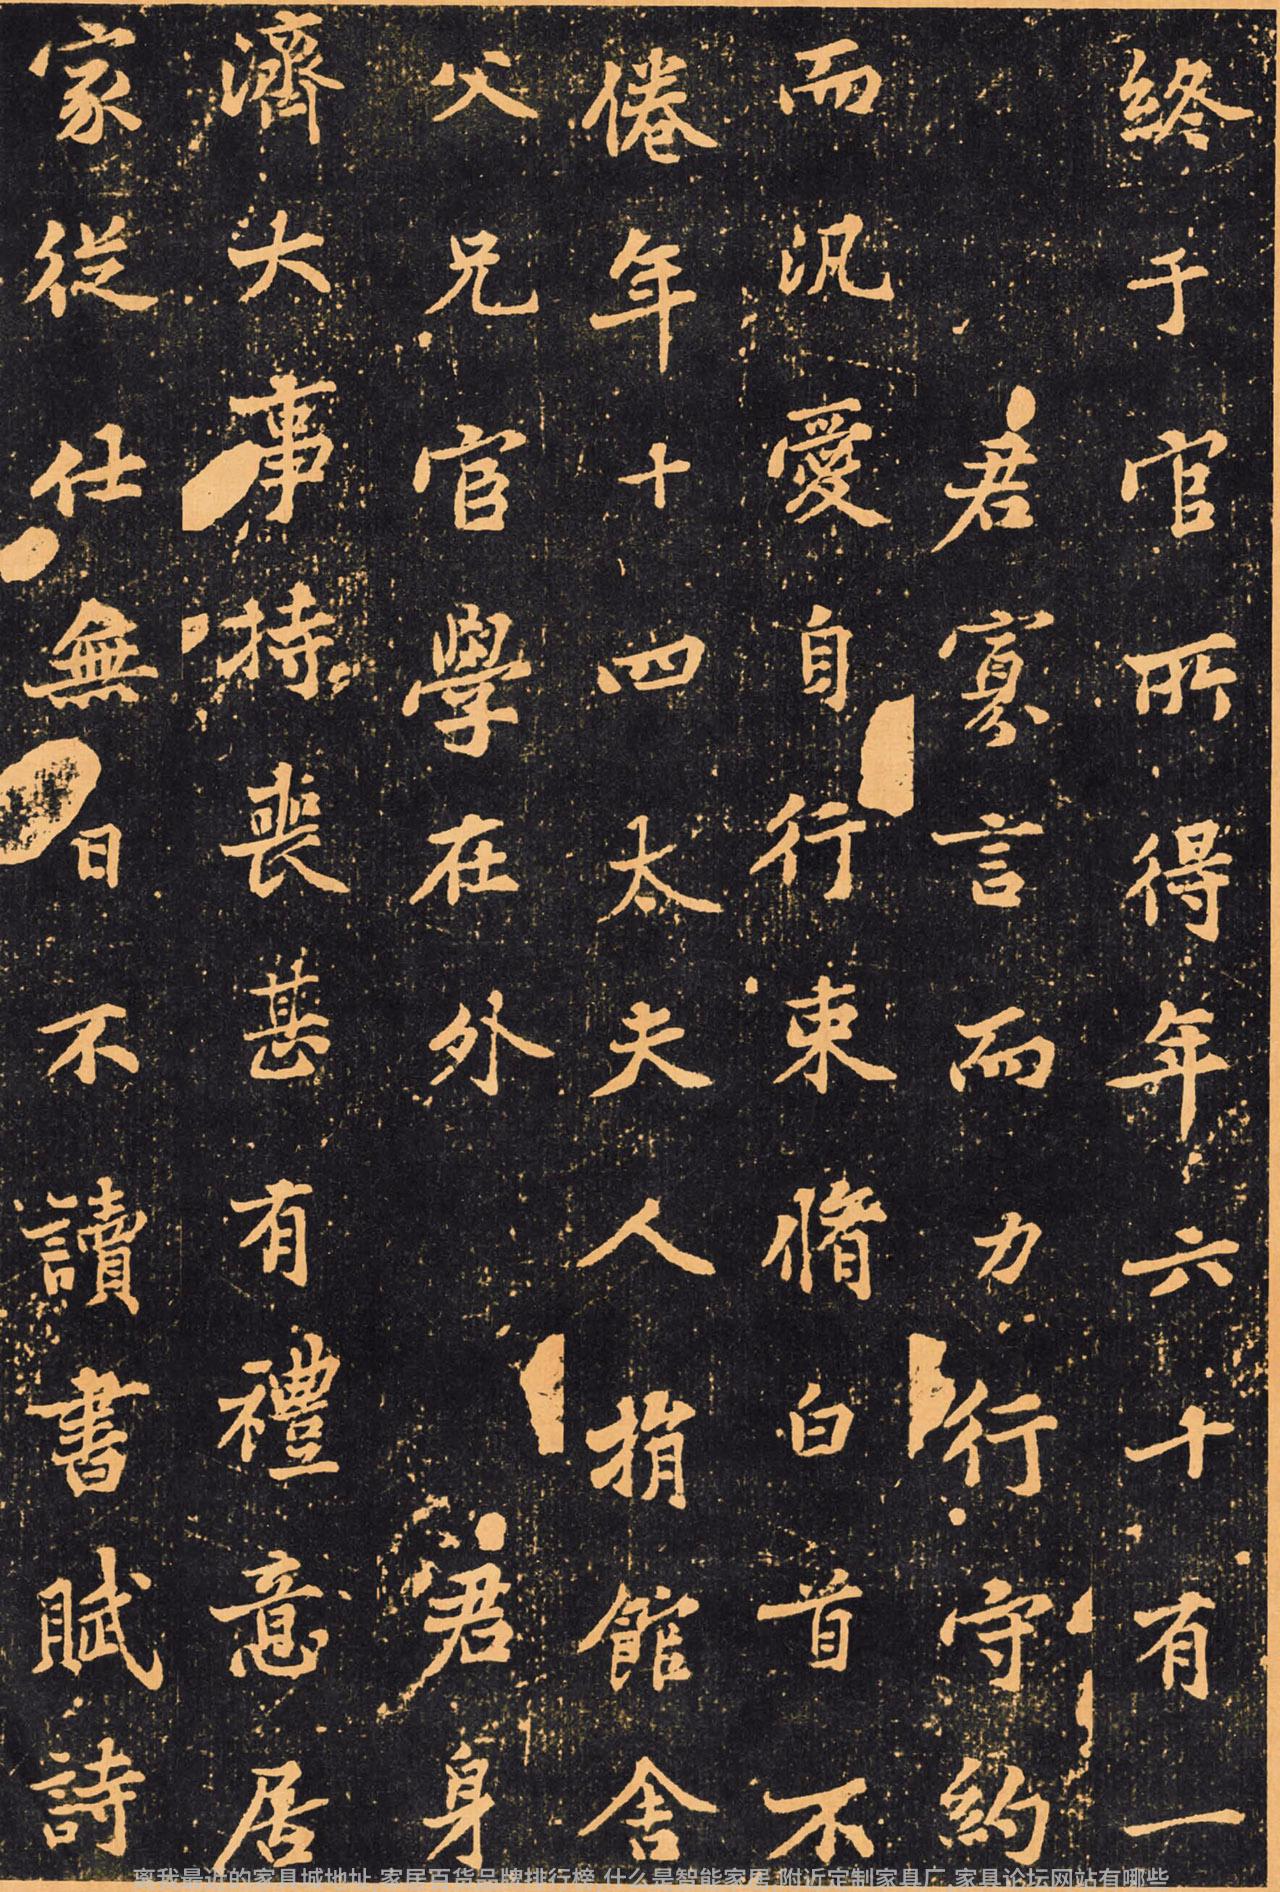 終于官所得年六十有一
君寡言而力行守約
而汎愛自行束脩白首不
倦年十四太夫人捐館舍
父兄官學在外君身
濟大事持喪甚有禮意居
家從仕無日不讀書賦詩
离我最近的家具城地址 家居百货品牌排行榜 什么是智能家居 附近定制家具厂 家具论坛网站有哪些